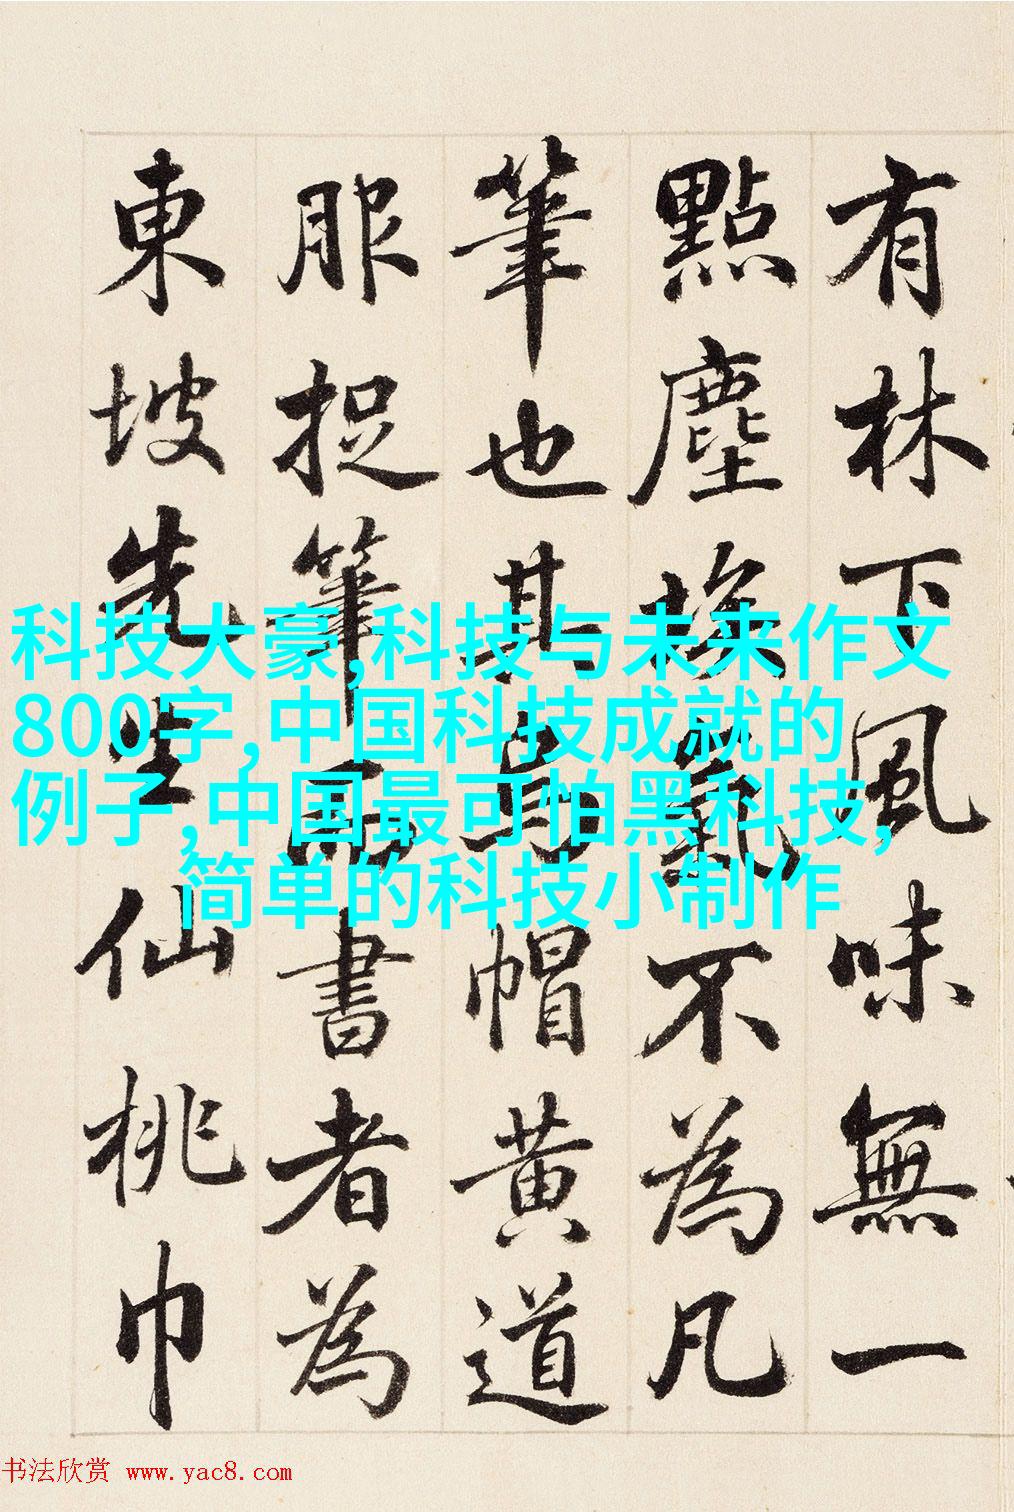 有林下風味無一
點塵埃氣不為凡
筆也其烏帽黃道
服捉筆而書者為
東坡先生仙桃巾
科技大豪,科技与未来作文
800字,中国科技成就的
例子,中国最可怕黑科技,
简单的科技小制作
书法欣赏 www.yac8.com